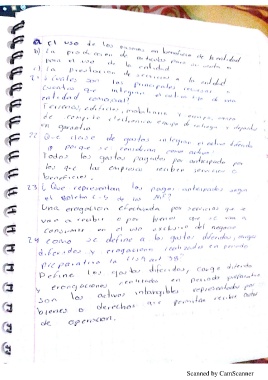 a. el uso de los mismos en beneficio de la entidad
b) la producción de articulos para su venta o
para el uso de la entidad
c) La prestación de servicios a la entidad
21. ¿Cuales son las principales
cuentas que integran el activo fijo de una
entidad comercial?
Terrenos, edificios, mobiliario y equipo, equipo
de computo, equipo de entrega y depositos
en garantia
22. Que clase de gastos integran el activo diferido
y porque se consideran como activo?
Todos los gastos pagados por anticipado por
los que la empresa recibirá servicios o
beneficios.
23. ¿Que representan los pagos anticipados segun
el Boletin C-5 de las
Una erogación efectuada por servicios que se
van a recibir o por bienes que se van a
consumir en el uso exclusivo del negocio
24 como se define a los gastos diferidos, cargos
diferidos y erogaciones en periodo
preparativo la
Define los gastos diferidos, cargos diferidos
y erogaciones en periodo preparativo
son los activos intangibles representados por
bienes o derechos que permitan
de operación.
Scanned by CamScanner